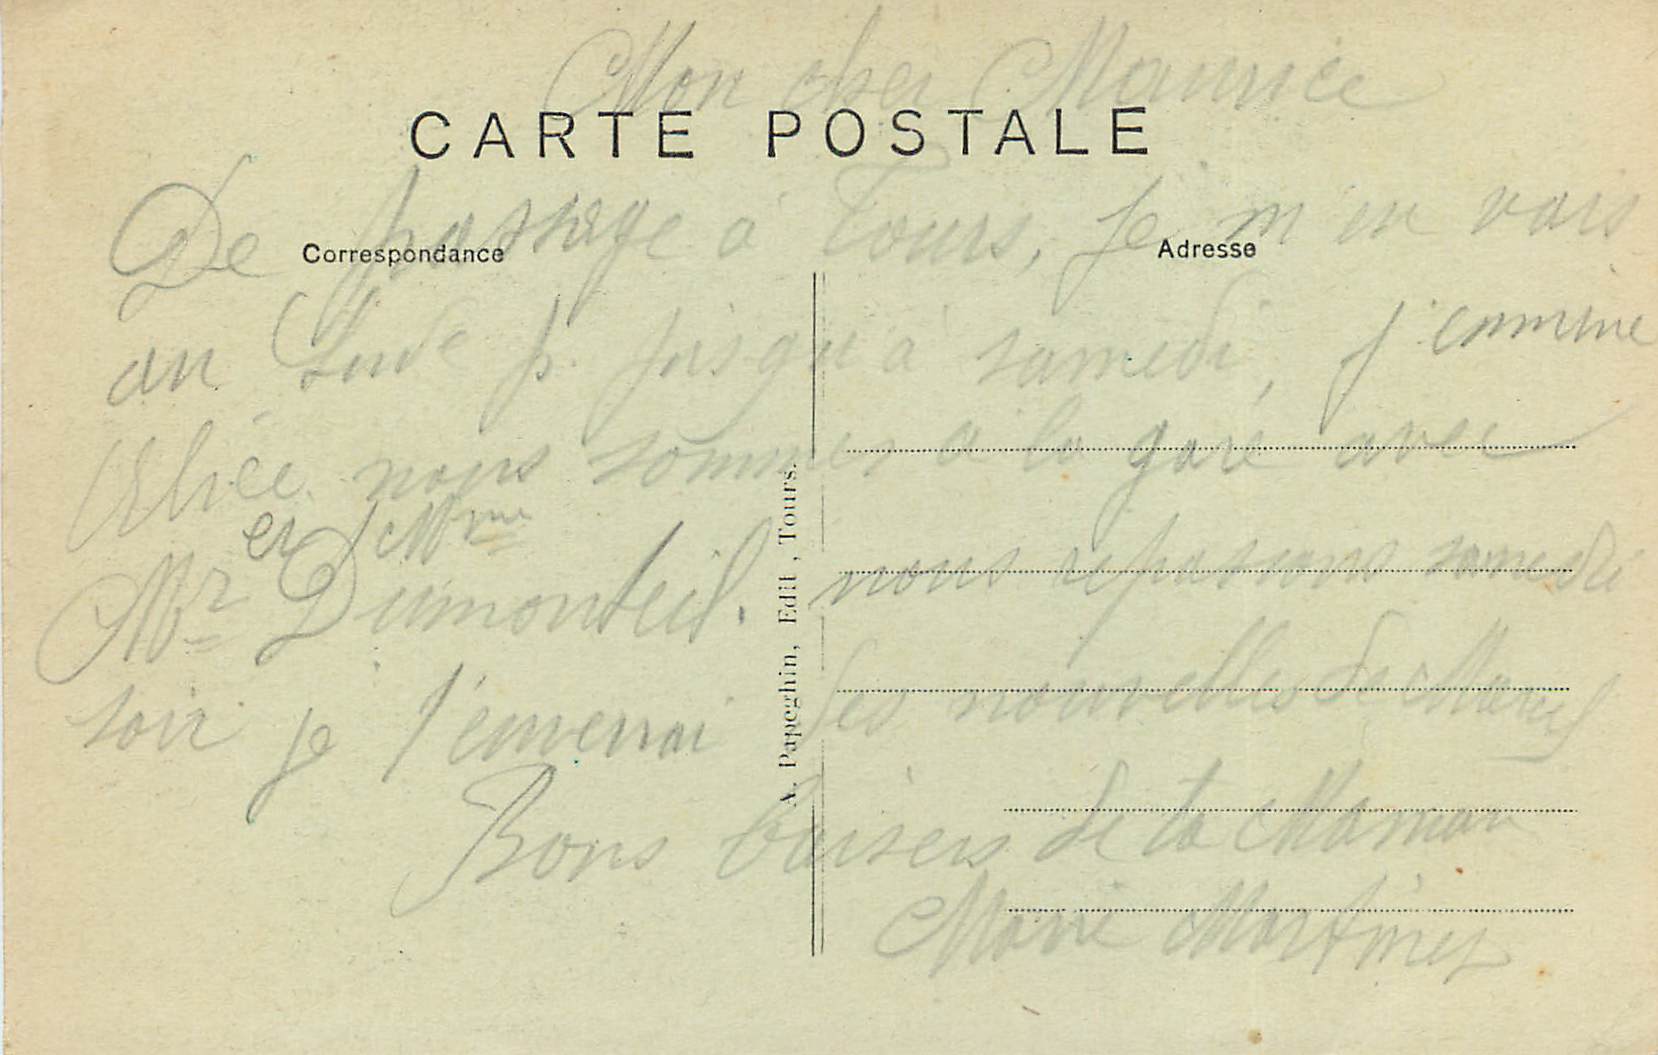 Mon cher Maurice
CARTE POSTALE
De passage à Tours, je m'en vais
Correspondance
Adresse
au Lude p. jusqu'à samedi, j'emmène
nous sommes à la gare avec
Mr et Mme Dumonteil. nous repassons samedi
soir je t'enverrai des nouvelles de Marcel
Bons baisers de ta Maman
Marie Martinez
A. Papeghin, Edit, Tours.